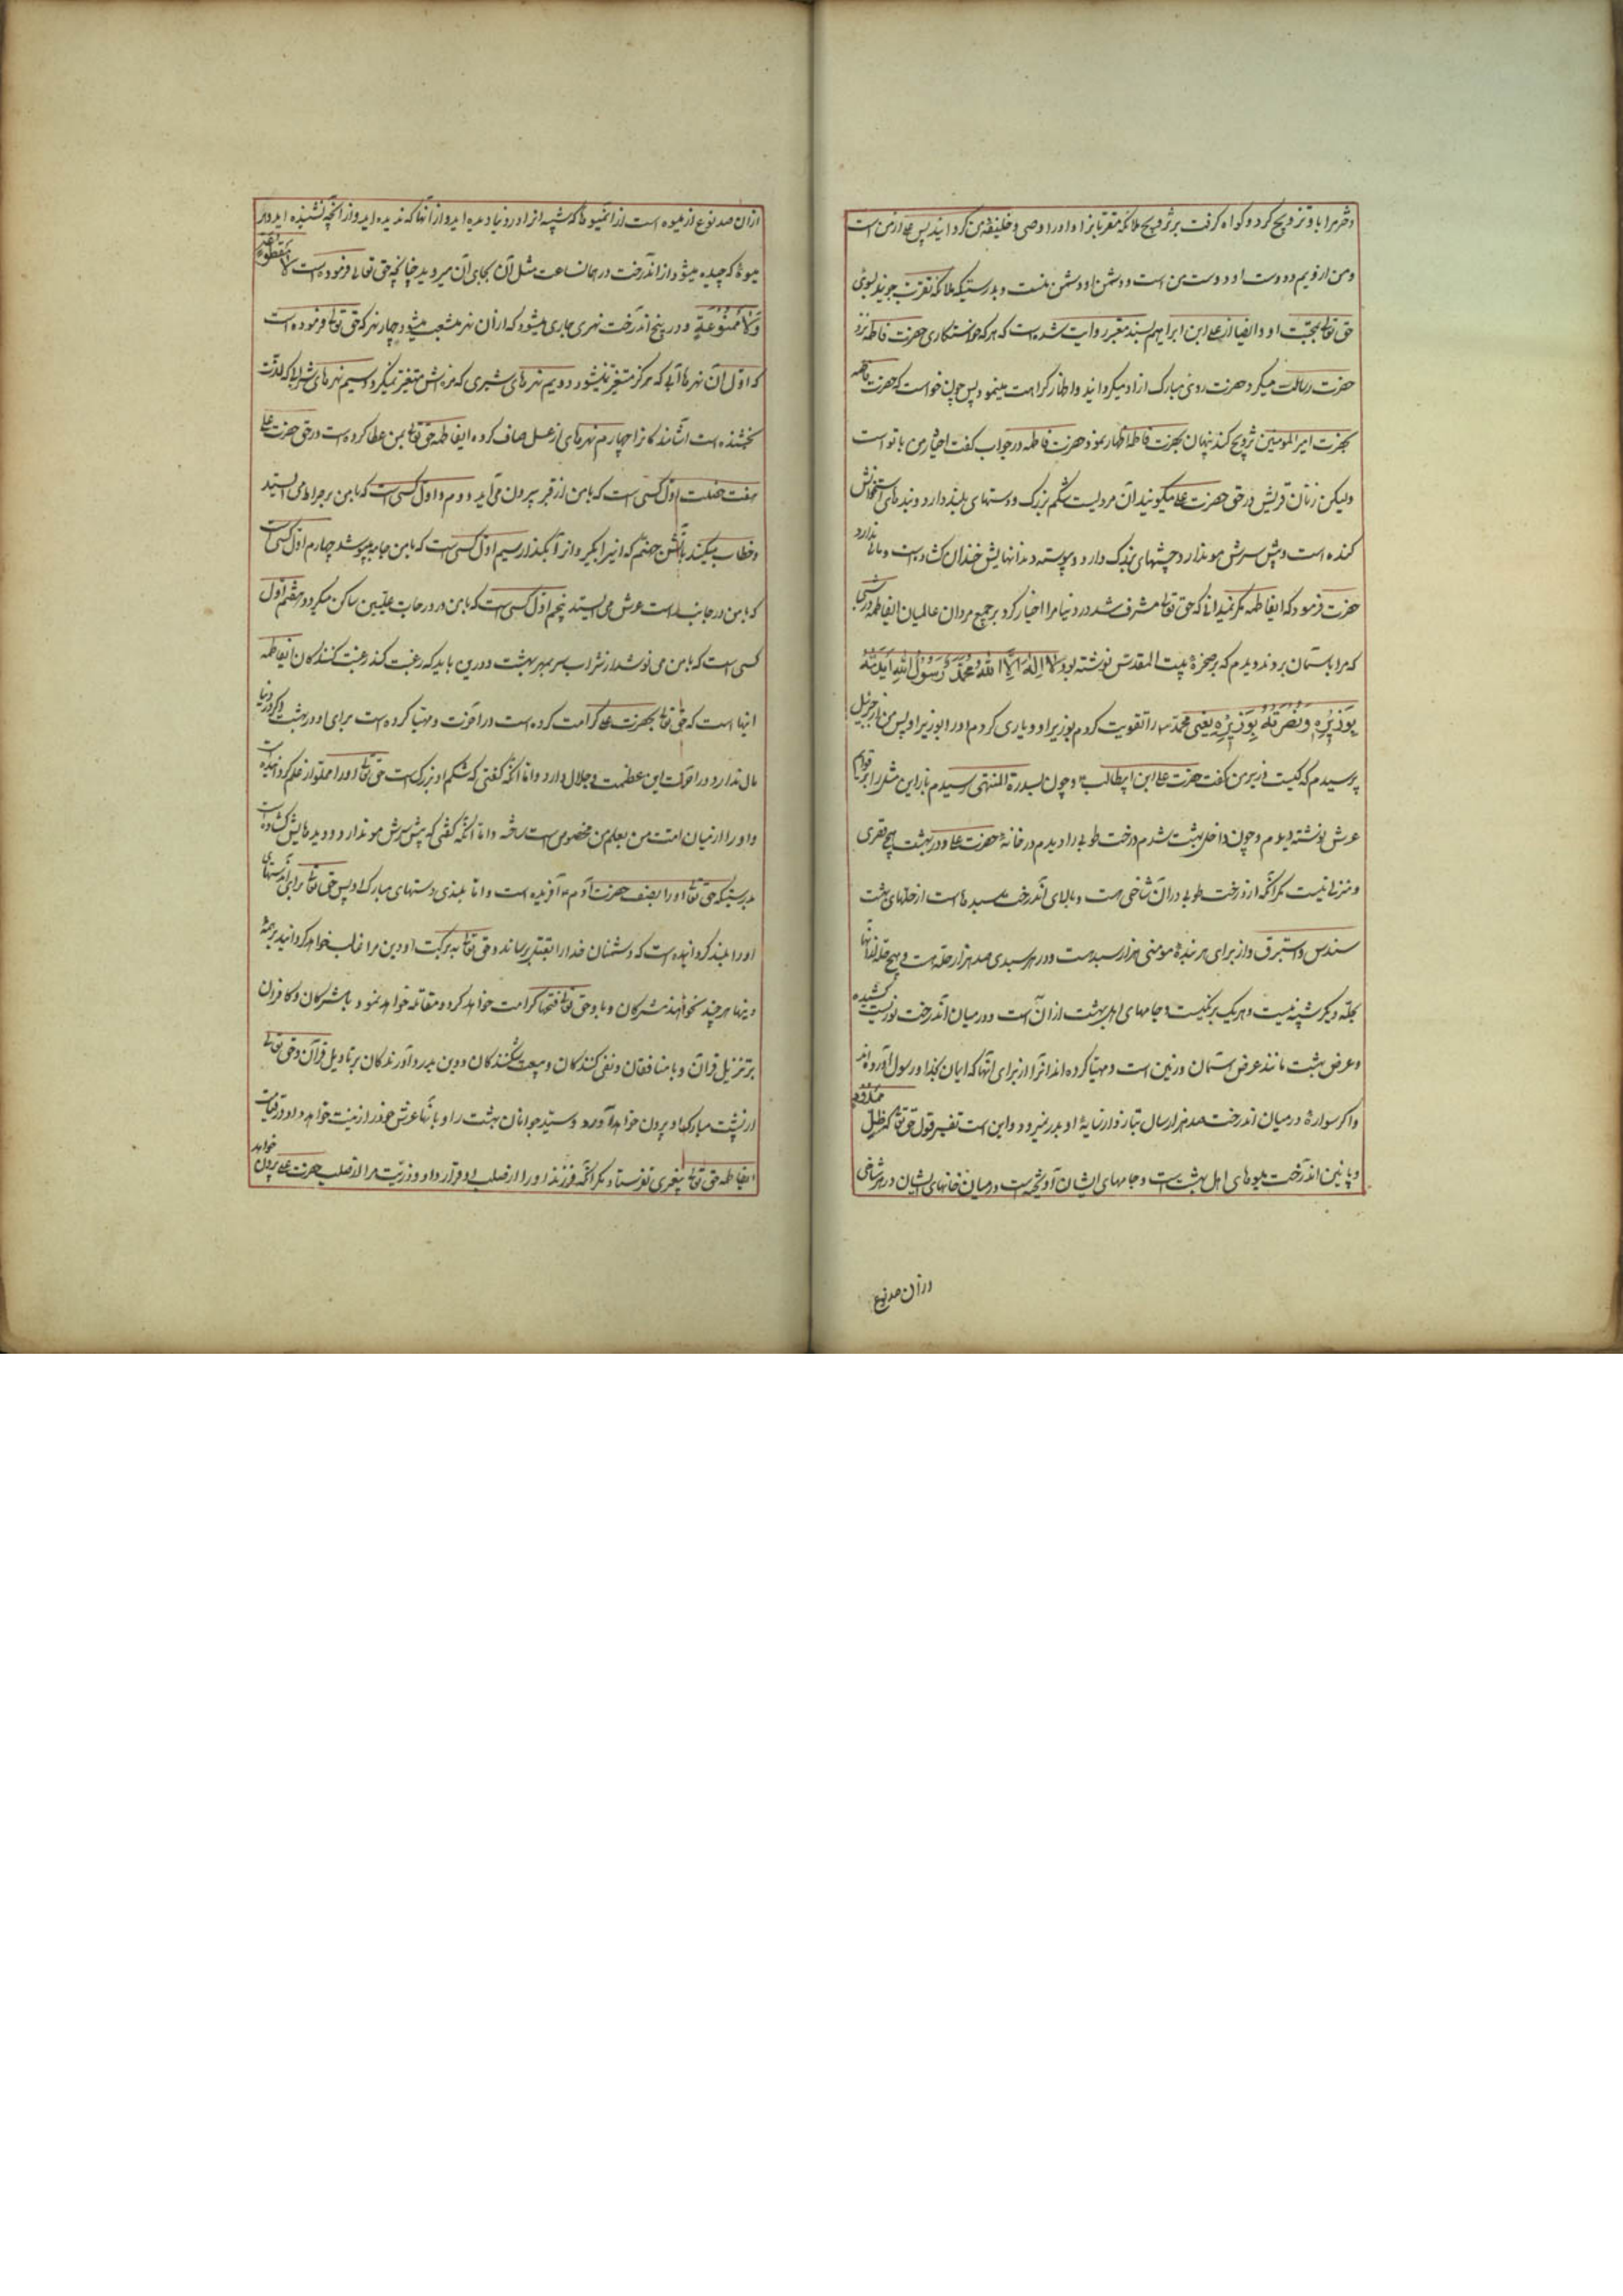 دخترم را باو تزویج کرد و گواه گرفت بر تزویج ملائکه مقربانرا و او را وصی و خلیفه من گردانید پس علی از من است
و من از ویم و دوست او دوست من است و دشمن او دشمن منست و بدرستیکه ملائکه تقرب جویند بسوی
حق تعالی بمحبت او و ایضا از علی ابن ابراهیم بسند معتبر روایت شده است که هر که خواستکاری حضرت فاطمه نزد
حضرت رسالت میکرد حضرت روی مبارک از او میکردانید و اظهار کراهت مینمود پس چون خواست که حضرت فاطمه
بحضرت امیر المومنین تزویج کند پنهان بحضرت فاطمه اظهار نمود حضرت فاطمه در جواب گفت اختیار من با تو است
ولیکن زنان قریش در حق حضرت علی میگویند آن مردیست شکم بزرک و دستهای بلند دارد و بندهای استخوانش
کنده است و پیش سرش مو ندارد و چشمهای بزرک دارد و پیوسته دندانهایش خندان کشاده است و مالی ندارد
حضرت فرمود که ایفاطمه مکر نمیدانی که حق تعالی مشرف شد در دنیا مرا اختیار کرد بر جمیع مردان عالمیان ایفاطمه در شبی
که مرا باسمان بردند دیدم که بر صخره بیت المقدس نوشته بود لا اله الا الله محمد رسول الله ایدته
بوزیره و نصرته بوزیره یعنی محمد را تقویت کردم بوزیر او و یاری کردم او را بوزیر او پس من از جبرئیل
پرسیدم که کیست وزیر من گفت حضرت علی ابن ابیطالب و چون بسدرة المنتهی رسیدم باز این مثل را بر قوایم
عرش نوشته دیدم و چون داخل بهشت شدم درخت طوبی را دیدم در خانه حضرت علی و در بهشت هیچ قصری
و منزلی نیست مکر انکه از درخت طوبی در آن شاخی هست و بالای آندرخت سبدهاست از حلهای بهشت
سندس و استبرق و از برای هر بنده مومنی هزار سبد هست و در هر سبدی صد هزار حله هست و هیچ حله از انها
بحله دیکر شبیه نیست و هر یک برنکیست و جامهای اهل بهشت از آن است و در میان آندرخت نوریست کشیده
و عرض بهشت مانند عرض اسمان و زمین است و مهیا کرده اند انرا از برای انها که ایمان بخدا و رسول آورده اند
و اگر سواره در میان اندرخت صد هزار سال بتازد از سایه او بدر نمیرود و این است تفسیر قول حق تعالی که و ظل ممدود
و پائین اندرخت میوهای اهل بهشت است و جامهای ایشان آویخته است در میان خانهای ایشان در هر شاخی
در آن صد نوع
از آن صد نوع از میوه است از انمیوها که شبیه انرا در دنیا دیده اید و از انها که ندیده اید و از انچه نشنیده اید و هر
میوه که چیده میشود از اندرخت در همانساعت مثل آن بجای آن میروید چنانچه حق تعالی فرموده است لا مقطوعة
ولا ممنوعة و در بیخ اندرخت نهری جاری میشود که از آن نهر منشعب میشود چهار نهر که حق تعالی فرموده است
که اول آن نهرها آبی که هرگز متغیر نمیشود دویم نهرهای شیری که مزه اش متغیر نمیکردد سیم نهرهای شرابی که لذت
بخشنده است اشامندکانرا چهارم نهرهای از عسل صاف کرده ایفاطمه حق تعالی بمن عطا کرده است در حق حضرت علی
هفت خصلت اول کسی است که با من از قبر بیرون می آید دوم و اول کسی است که با من بر صراط می ایستد
و خطاب میکند بآتش جهنم که اینرا بکیر و انرا بکذار سیم اول کسی است که با من جامه پوشد چهارم اول کسی است
که با من در جانب راست عرش می ایستد پنجم اول کسی است که با من در درجات علیین ساکن میکردد هفتم اول
کسی است که با من می نوشد از شراب سر بمهر بهشت و در این باید که رغبت کند رغبت کنندکان ایفاطمه
اینها است که حق تعالی بحضرت علی کرامت کرده است در اخرت و مهیا کرده است برای او در بهشت و اگر در دنیا
مال ندارد در اخرت این عظمت و جلال دارد و اما انکه گفتی که شکم او بزرک است حق تعالی او را مملو از علم کردانیده است
و او را از میان امت من بعلم من مخصوص ساخته و اما انکه گفتی که پیش سرش مو ندارد و دیدهایش کشاده است
بدرستیکه حق تعالی او را بصفت حضرت آدم آفریده است و اما بلندی دستهای مبارک او پس حق تعالی برای آن دستهای
او را بلند کردانیده است که دشمنان خدا را بقتل رساند و حق تعالی به برکت او دین مرا غالب خواهد کردانید بر همه
دینها هر چند نخواهند مشرکان و با و حق تعالی فتحها کرامت خواهد کرد و مقاتله خواهد نمود با مشرکان و کافران
بر تنزیل قران و با منافقان و نفی کنندکان و بیعت شکنندکان و دین بدر رواندکان بر تاویل قرآن و حق تعالی
از پشت مبارک او بیرون خواهد آورد دو سید جوانان بهشت را و بانها عرش خود را زینت خواهد داد در قیامت
ایفاطمه حق تعالی پیغمبری نفرستاد مکر انکه فرزند او را از صلب او قرار داد و ذریت مرا از صلب حضرت علی بیرون خواهد